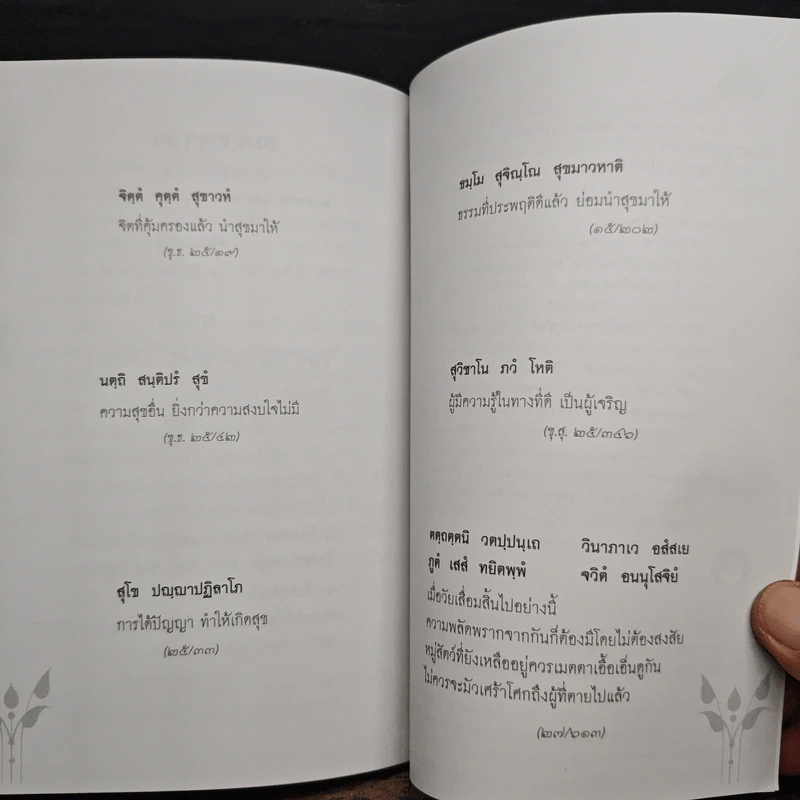 จิตฺตํ คุตฺตํ สุขาวหํ
จิตที่คุ้มครองแล้ว นำสุขมาให้
(ขุ.ธ. ๒๕/๑๙)
นตฺถิ สนฺติปรํ สุขํ
ความสุขอื่น ยิ่งกว่าความสงบใจไม่มี
(ขุ.ธ. ๒๕/๔๒)
สุโข ปญฺญาปฏิลาโภ
การได้ปัญญา ทำให้เกิดสุข
(๒๕/๓๓)
ธมฺโม สุจิณฺโณ สุขมาวหาติ
ธรรมที่ประพฤติดีแล้ว ย่อมนำสุขมาให้
(๑๕/๒๐๒)
สุวิชาโน ภวํ โหติ
ผู้มีความรู้ในทางที่ดี เป็นผู้เจริญ
(ขุ.สุ. ๒๕/๓๔๖)
ตตฺถตฺตนิ วตปฺปนฺเถ วินาภาเว อสํสเย
ภูตํ เสสํ ทยิตพฺพํ จวิตํ อนนุโสจิยํ
เมื่อวัยเสื่อมสิ้นไปอย่างนี้
ความพลัดพรากจากกันก็ต้องมีโดยไม่ต้องสงสัย
หมู่สัตว์ที่ยังเหลืออยู่ควรเมตตาเอื้อเอ็นดูกัน
ไม่ควรจะมัวเศร้าโศกถึงผู้ที่ตายไปแล้ว
(๒๗/๖๑๓)